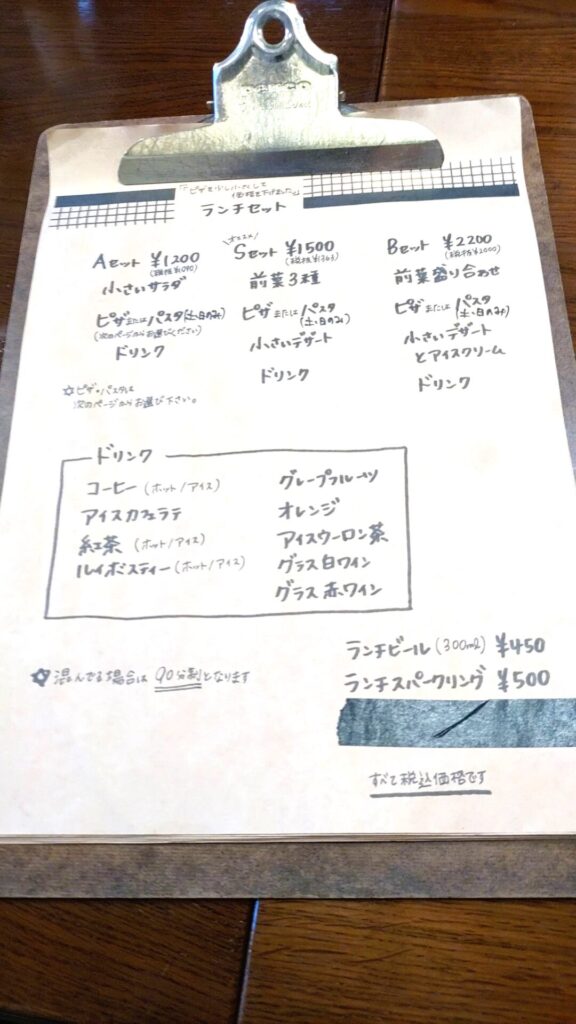 「ピザを少し小さくして
価格を下げました。」
ランチセット
Aセット ¥1200
(税抜¥1090)
小さいサラダ
ピザまたはパスタ(土・日のみ)
(次のページからお選びください)
ドリンク
オススメ!
Sセット ¥1500
(税抜¥1363)
前菜3種
ピザまたはパスタ
(土・日のみ)
小さいデザート
ドリンク
Bセット ¥2200
(税抜¥2000)
前菜盛り合わせ
ピザまたはパスタ
(土・日のみ)
小さいデザート
とアイスクリーム
ドリンク
☆ピザ・パスタは
次のページからお選び下さい。
ドリンク
コーヒー(ホット/アイス)
アイスカフェラテ
紅茶(ホット/アイス)
ルイボスティー(ホット/アイス)
グレープフルーツ
オレンジ
アイスウーロン茶
グラス白ワイン
グラス赤ワイン
ランチビール(300ml) ¥450
ランチスパークリング ¥500
混んでる場合は90分制となります
すべて税込価格です